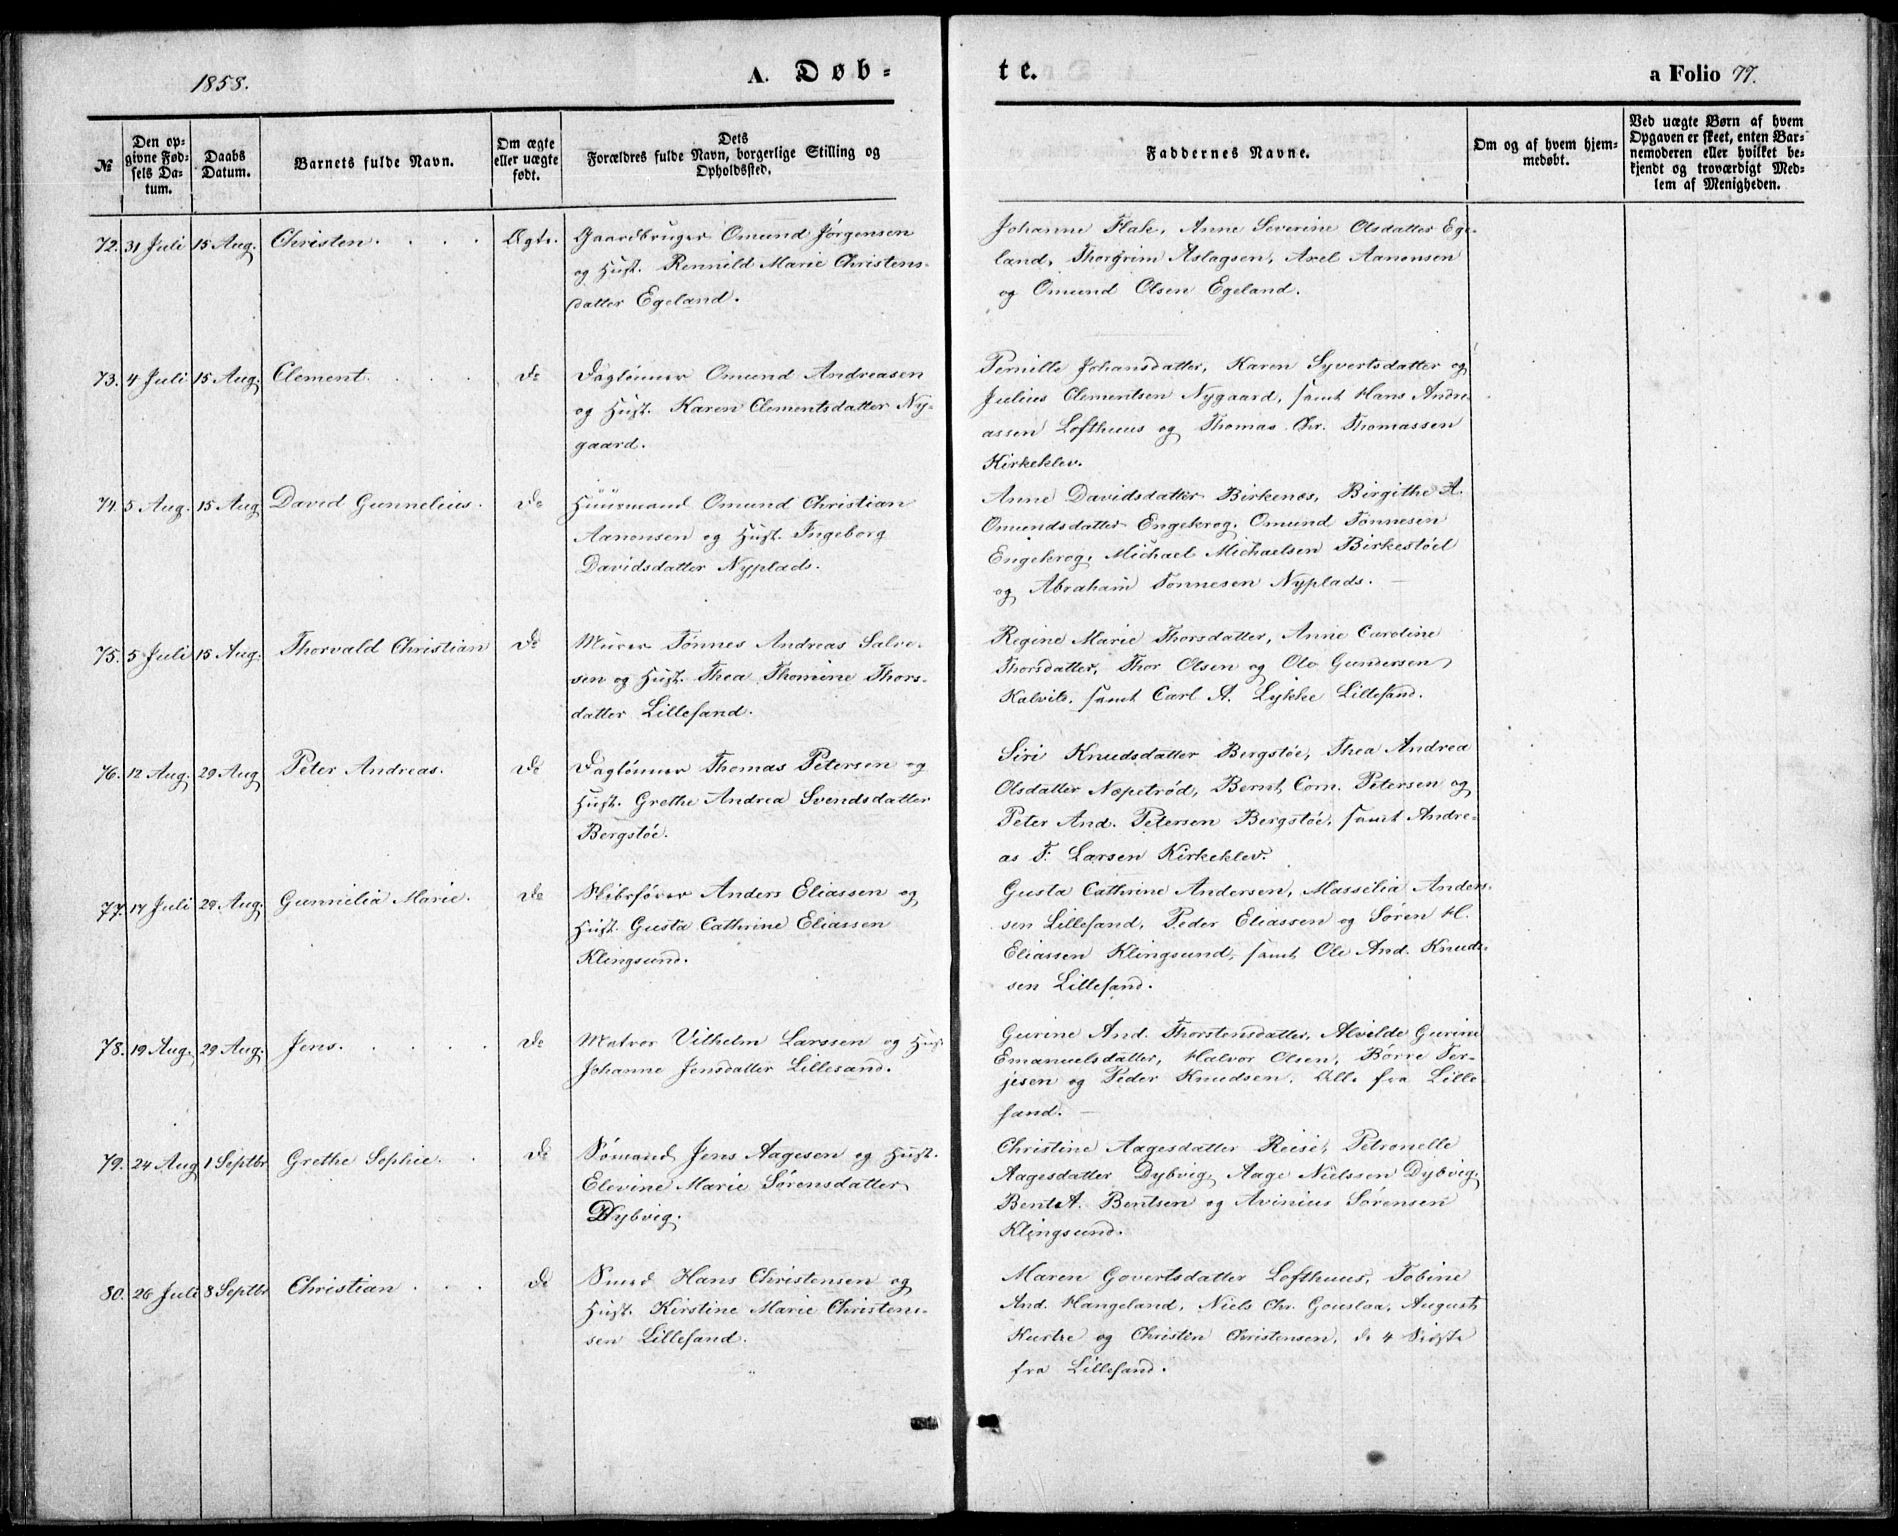 1858.
A. Døb-
te.
a Folio 77.
№
Den op-
givne Fød-
sels Da-
tum.
Daabs
Datum.
Barnets fulde Navn.
Om ægte
eller uægte
født.
Dets
Forældres fulde Navn, borgerlige Stilling og
Opholdssted.
Faddernes Navne.
Om og af hvem hjem-
medøbt.
Ved uægte Børn af hvem
Opgaven er skeet, enten Bar-
nemoderen eller hvilket be-
kjendt og troværdigt Med-
lem af Menigheden.
72. 31 Juli 15 Aug. Christen. Ægte. Gaardbruger Omund Jørgensen
og Hust. Rennild Marie Christens-
datter Egeland.
Johanne Flak, Anne Severine Olsdatter Ege-
land, Thorgrim Aslagsen, Axel Aanonsen
og Omund Olsen Egeland.
73. 4 Juli 15 Aug. Clement. do Daglønner Omund Andreasen
og Hust. Karen Clementsdatter Ny-
gaard.
Pernille Johansdatter, Karen Syvertsdatter og
Julius Clementsen Nygaard, samt Hans Andre-
assen Lofthuus og Thomas Chr. Thomassen
Kirkeklev.
74. 5 Aug. 15 Aug David Gunnelius. do Huusmand Omund Christian
Aanonsen og Hust. Ingeborg
Davidsdatter Nyplads.
Anne Davidsdatter Birkenes, Birgithe A.
Omundsdatter Engekrog, Omund Tønnesen
Engekrog, Michael Michaelsen Birkestøel
og Abraham Tønnesen Nyplads.
75. 5 Juli 15 Aug. Thorvald Christian do Murer Tønnes Andreas Salve-
sen og Hust. Thea Thomine Thors-
datter Lillesand.
Regine Marie Thorsdatter, Anne Caroline
Thorsdatter, Thor Olsen og Ole Gundersen
Kalvild, samt Carl A. Lykke Lillesand.
76. 12 Aug. 29 Aug Peter Andreas. do Daglønner Thomas Petersen og
Hust. Grethe Andrea Svendsdatter
Bergstøe.
Siri Knudsdatter Bergstøe, Thea Andrea
Olsdatter Næpetrød, Bernt Corn. Petersen og
Peter And. Petersen Bergstøe, samt Andre-
as T. Larsen Kirkeklev.
77. 17 Juli 29 Aug. Gunnilia Marie. do Skibsfører Anders Eliassen og
Hust. Gusta Cathrine Eliassen
Klingsund.
Gusta Cathrine Andersen, Massilia Ander-
sen Lillesand, Peder Eliassen og Søren M.
Eliassen Klingsund, samt Ole And. Knud-
sen Lillesand.
78. 19 Aug. 29 Aug. Jens. do Matros Vilhelm Larssen og Hust
Johanne Jensdatter Lillesand.
Gurine And. Thorstensdatter, Alvilde Gurine
Emanuelsdatter, Halvor Olsen, Børre Ter-
jesen og Peder Knudsen, Alle fra Lille-
sand.
79. 24 Aug 1 Septbr Grethe Sophie. do Sømand Jens Aagesen og Hust.
Elevine Marie Sørensdatter
Dybvig.
Christine Aagesdatter Reise, Petronelle
Aagesdatter Dybvig, Aage Nielssen Dybvig,
Bent A. Bentsen og Avinius Sørensen
Klingsund.
80. 26 Juli 8 Septbr Christian do Smed Hans Christensen og
Hust. Kirstine Marie Christen-
sen Lillesand.
Maren Govertsdatter Lofthuus, Tobine
And. Hangeland, Niels Chr. Gouslaa, August
og Christen Christensen, de 4 Sidste
fra Lillesand.